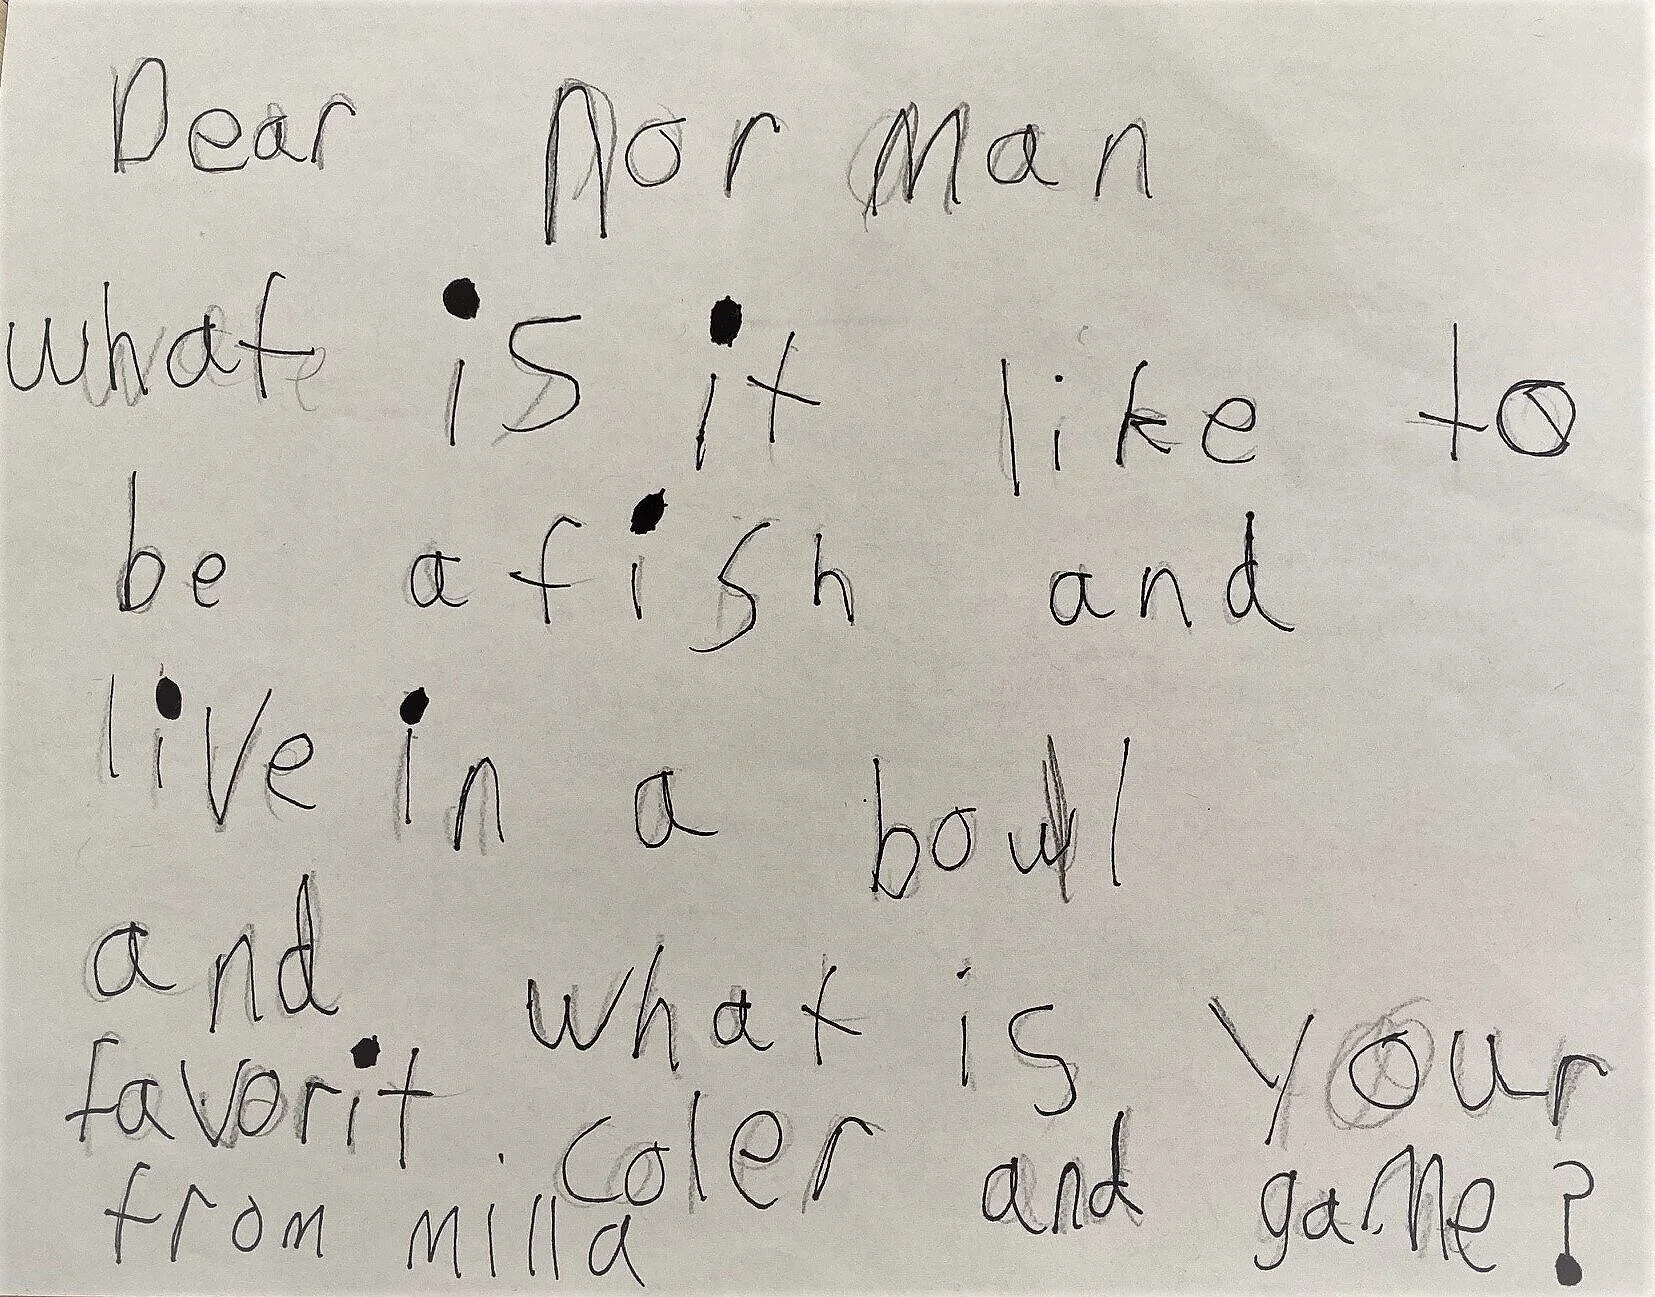 Dear Norman
what is it like to
be a fish and
live in a bowl
and what is your
favorit coler and game?
from milla